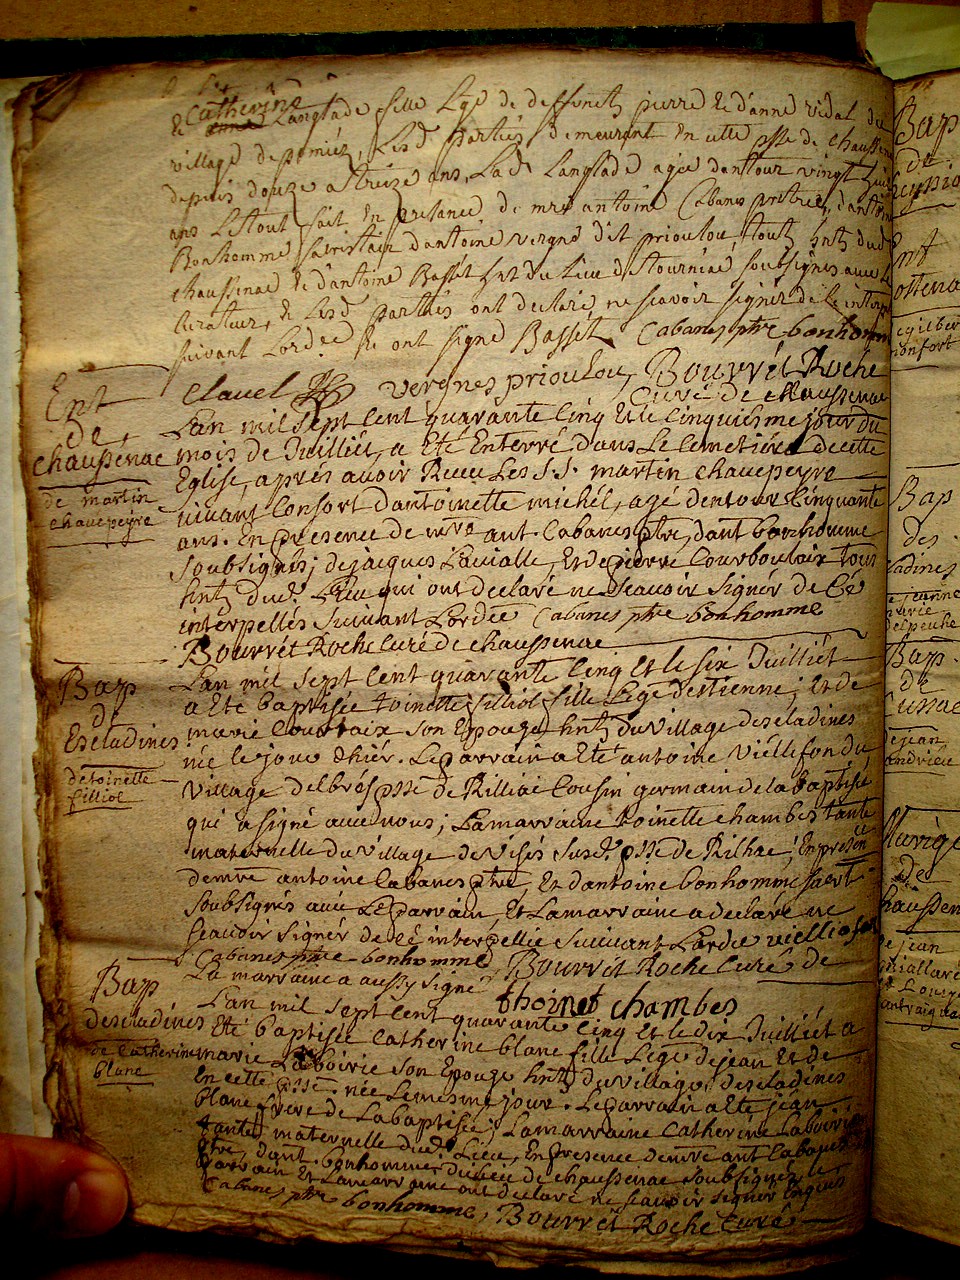 Catherine
et anne Langlade fille Lge de deffunctz pierre et d'anne vidal du
village de pemiéz, Lesd parties demeurant En cette psse de chaussenac
depuis douze a treize ans, Lad Langlade agée dentour vingt huit
ans Le tout fait En presance de mre antoine Cabanes prêtre, d'antoine
Bonhomme Sacristain d'antoine vergne dit prioulou, touts hntz dud
chaussenac et d'antoine Basset hnt du Lieu de tourniac soubsignés avec le
Curateur, et Lesd parties ont declaré ne scavoir signer de ce interpellés
suivant Lordce Et ont signé Basset Cabanes ptre bonhomme
Clavel vergnes prioulou, Bourrét Roche
Curé de chaussenac
Ent
de
chaussenac
de martin
chavepeyre
Lan mil sept cent quarante cinq et le cinquiesme jour du
mois de Juilliét, a Eté Enterré dans Le Cemetiére de cette
Eglise, aprés avoir Receu Les S.S. martin chavepeyre
vivant Consort d'antoinette michél, agé dentour Cinquante
ans. En presence de mre ant. Cabanes ptre, d'ant bonhomme
soubsignés; de jacques Lavialle, Et de pierre Courboulaix tous
hntz dud. Lieu qui ont declaré ne Scavoir signér de Cé
intérpellés suivant Lordce Cabanes ptre bonhomme
Bourrét Roche Curé de chaussenac
Bap
de
Escladines
de toinette
filliol
Lan mil sept cent quarante cinq Et le six Juilliét
a Eté baptisée toinette filliol fille Lége d'estienne; et de
marie Courboix son Epouze hntz du village descladines
née le jour d'hiér. Le parrain a Eté antoine viéllefon du
village delbrés psse de Rilliac Cousin germain de la baptisée
qui a signé avec nous; La marraine toinette chambes tante
maternelle du village de visis susd. psse de Rilhac; En presence
de mre antoine Cabanes ptre, Et d'antoine bonhomme sacrt
soubsignés avec Le parrain, Et La marraine a declaré ne
scavoir signér de cé interpellée suivant Lordce viellefon
Cabanes ptre bonhomme, Bourrét Roche Curé de
La marraine a aussy signé thoinet chambes
Bap
descladines
de Catherine
blanc
Lan mil sept cent quarante cinq et le dix Juilliét a
Eté baptisée Catherine blanc fille Lége de jean Et de
marie Laboirie son Epouze hntz du village descladines
En cette psse. née Le mesme jour. Le parrain a Eté jean
blanc frére de La baptisée; La marraine Catherine Laboirie
tante maternelle dud. Lieu, En presence de mre ant Cabanes
ptre, d'ant. bonhomme du Lieu de chaussenac soubsignés Le
parrain Et La marraine ont declaré ne scavoir signer Enquis
Cabanes ptre bonhomme, Bourrét Roche Curé
Bap
de
Ent
Bap
des
cladines
de jeanne
marie
delpeuche
Bap
de
de jean
andrieu
Mariage
de
chaussenac
de jean